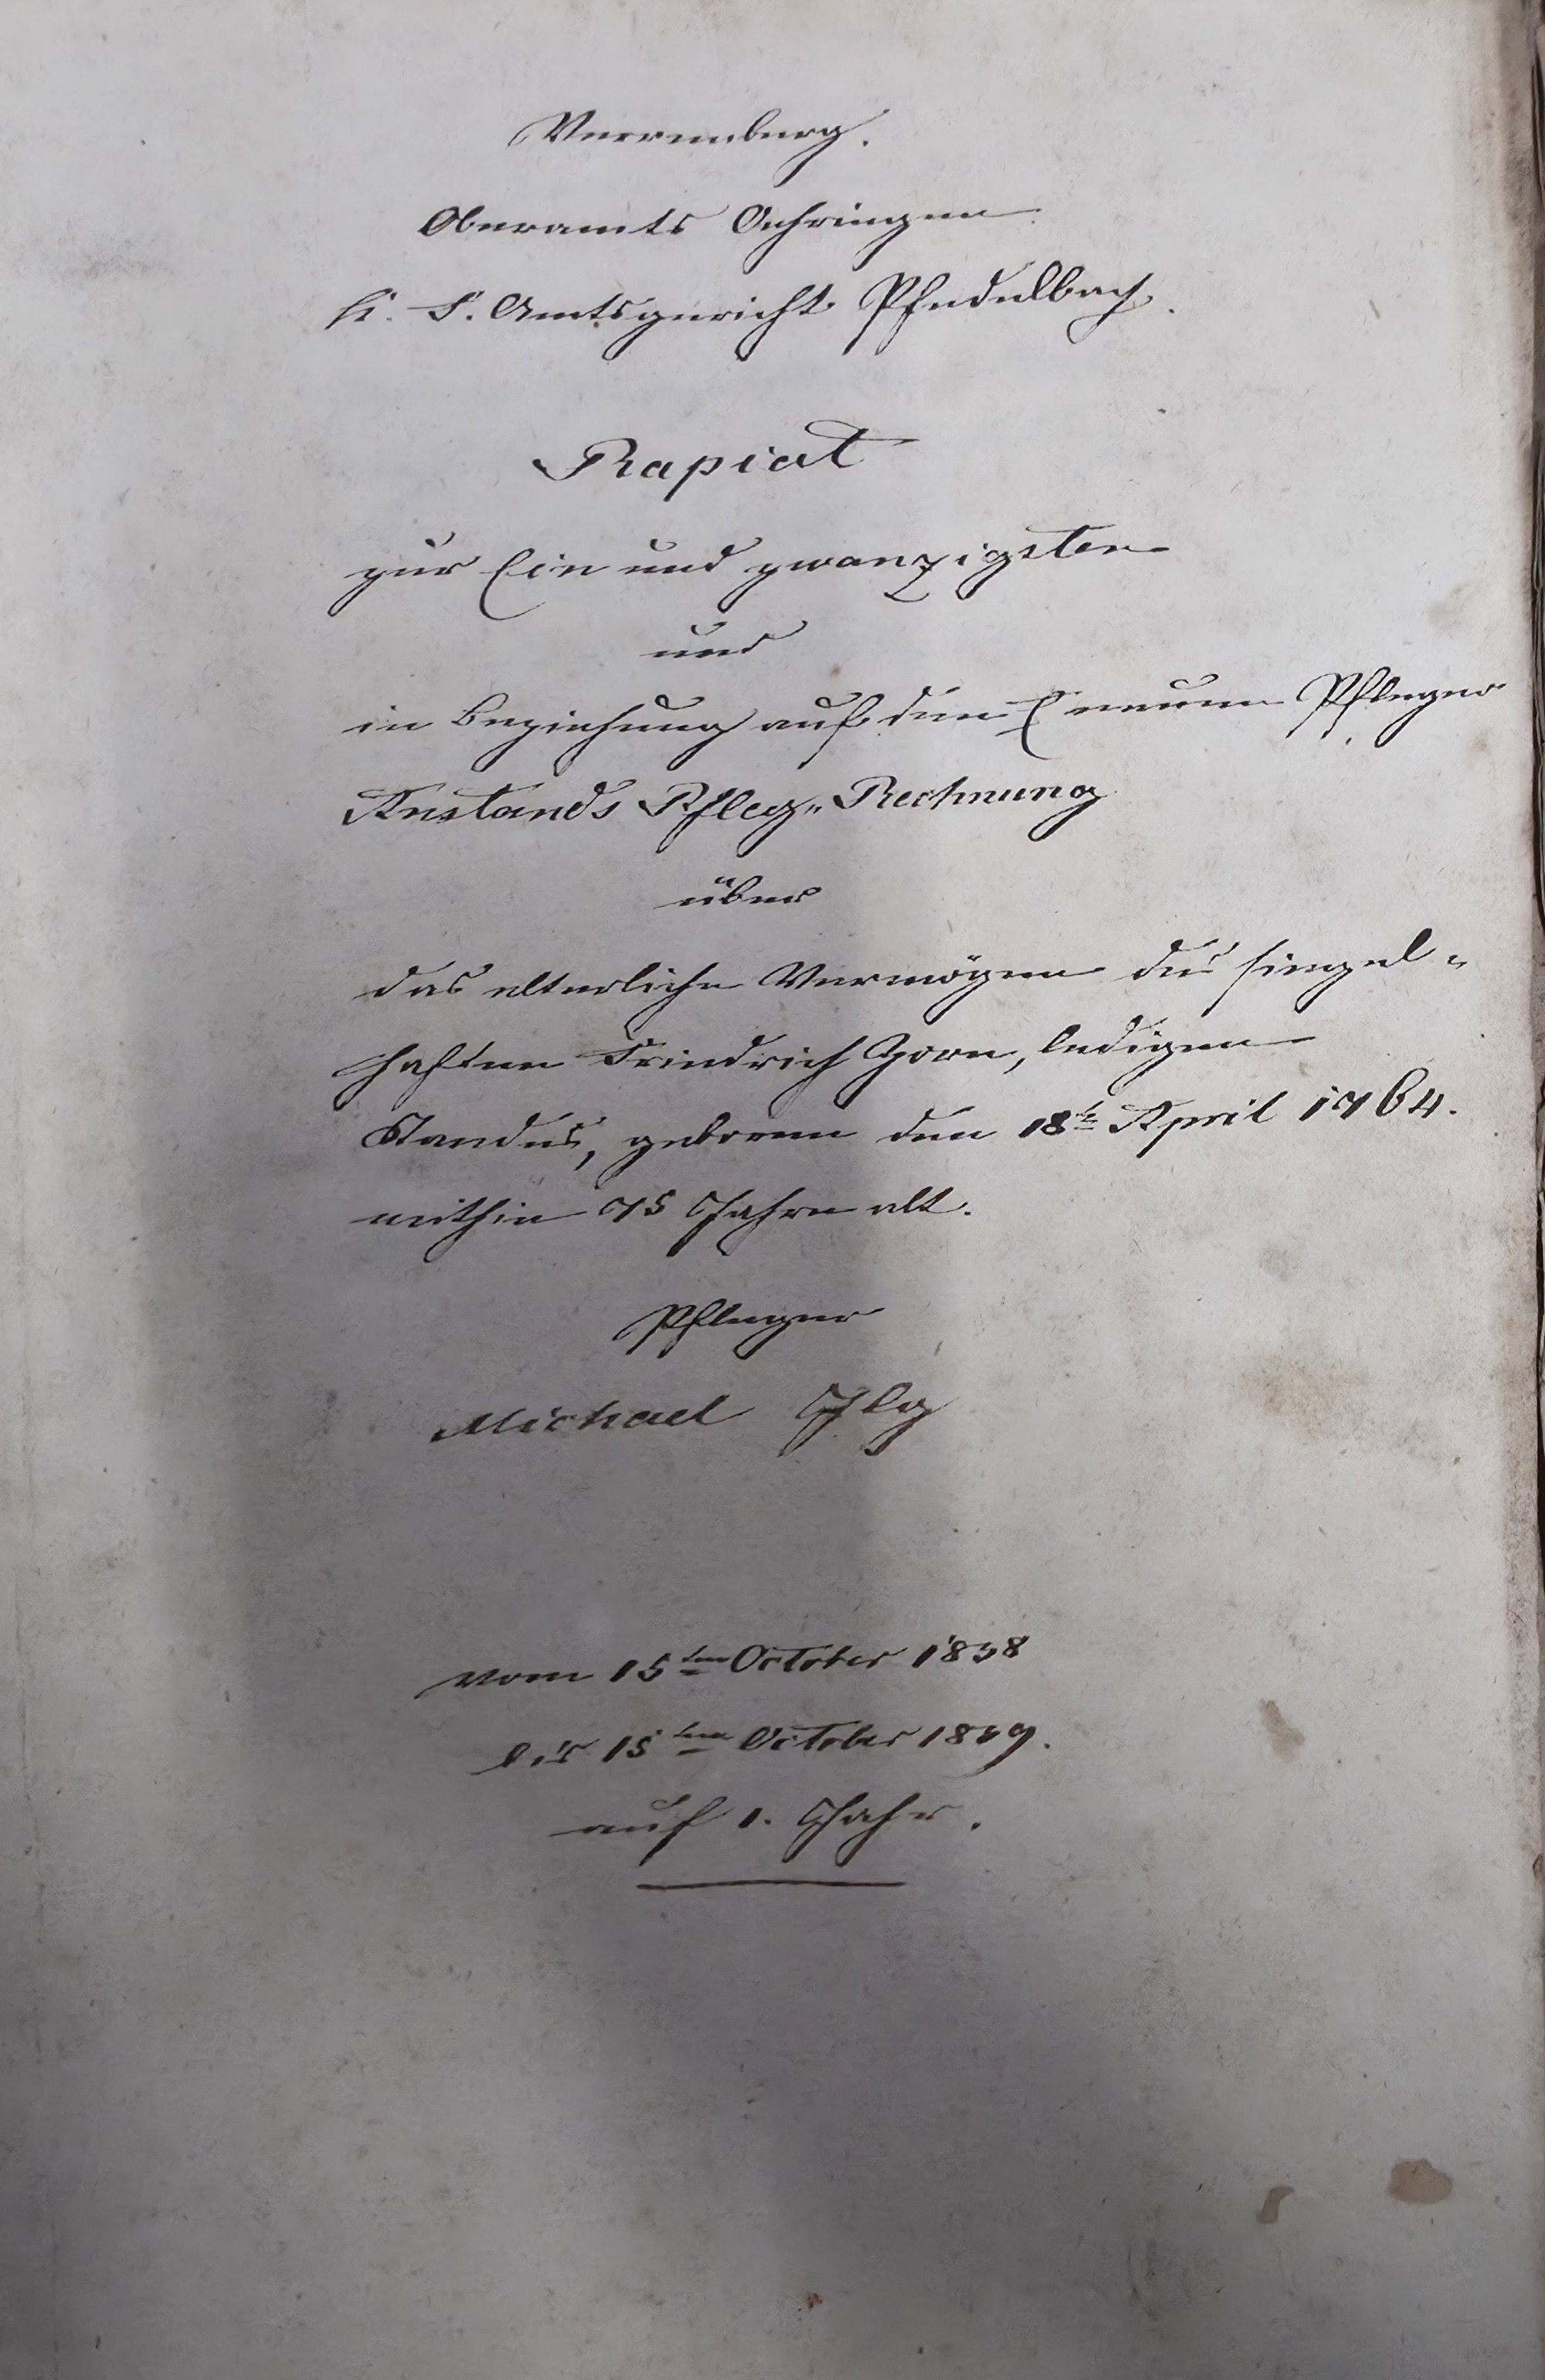 Verrenberg.
Oberamts Oehringen.
H. F. Amtsgericht Pfedelbach.
Rapiat
zur Ein und zwanzigsten
und
in Beziehung auf den neuen Pfleger
Anstands Pfleg„ Rechnung
über
das elterliche Vermögen des simpel„
haften Friedrich Zorn, ledigen
Standes, geboren den 18t April 1764.
mithin 75 Jahre alt.
Pfleger
Michael Ilg
vom 15ten October 1838
bis 15ten October 1839.
auf 1. Jahr.